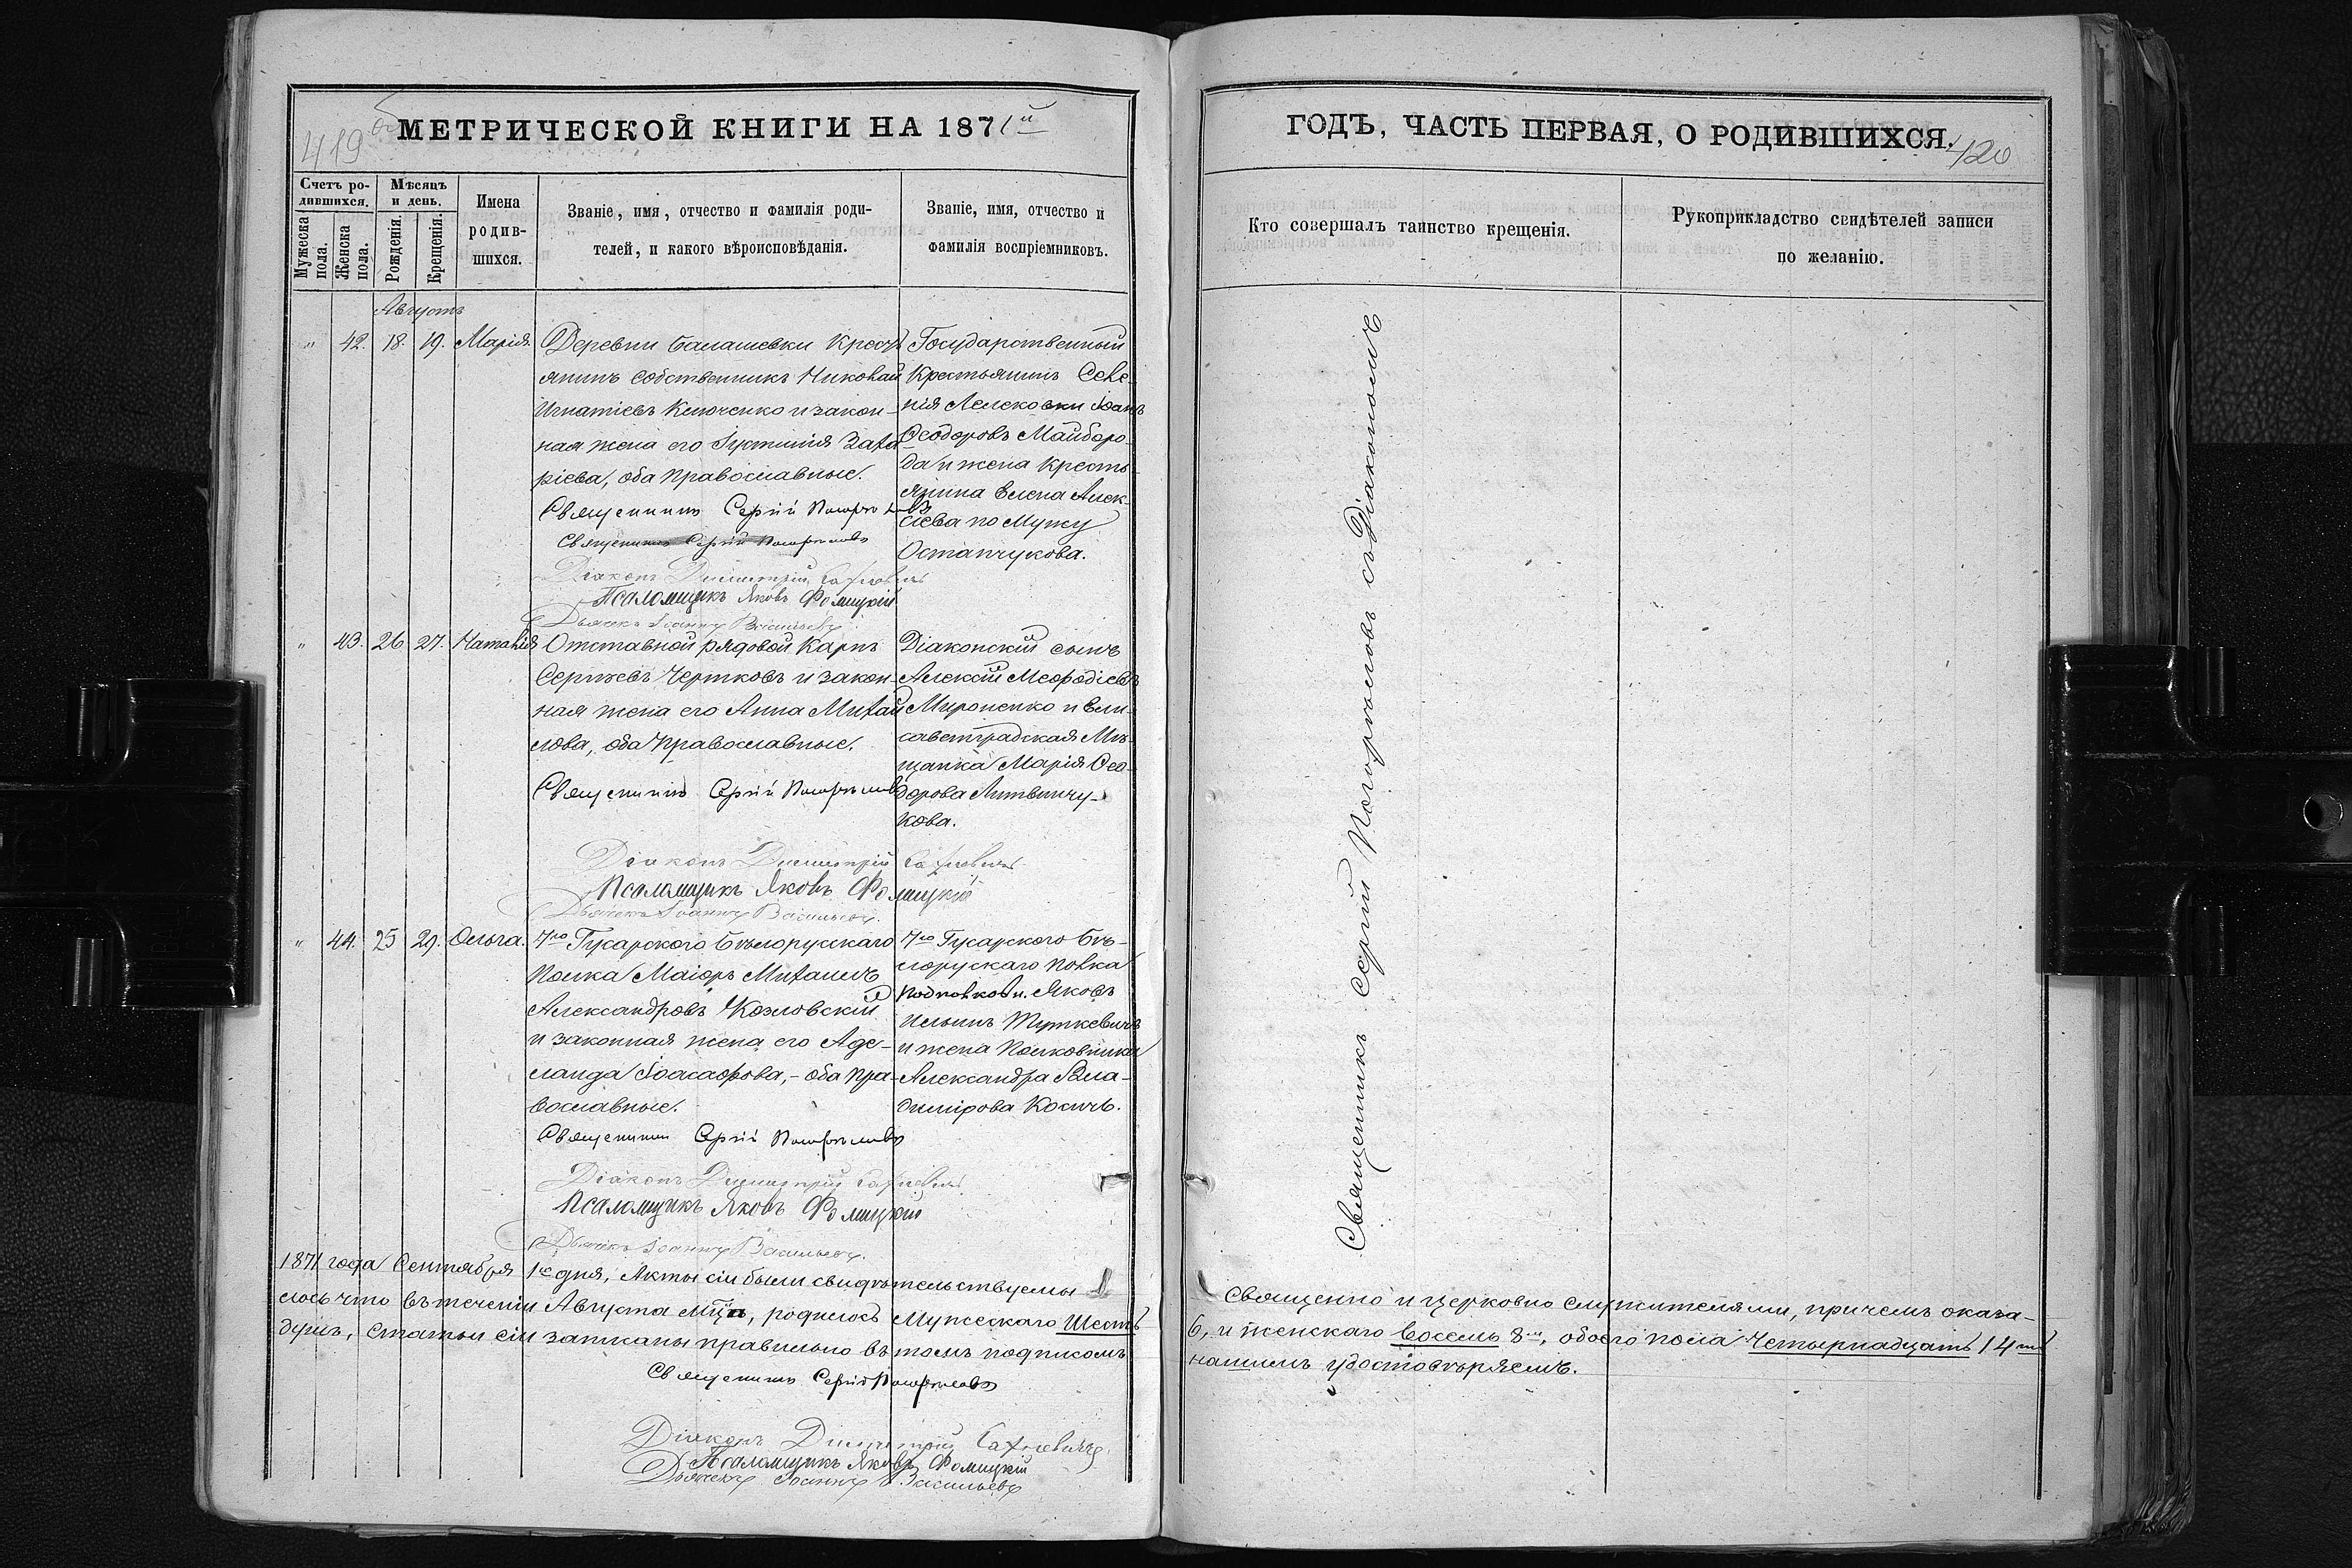 419 об
МЕТРИЧЕСКОЙ КНИГИ НА 1871й
Счетъ ро-
дившихся.
Мужеска
пола.
Женска
пола.
Мѣсяцъ
и день.
Рожденія.
Крещенія.
Имена
родив-
шихся.
Званіе, имя, отчество и фамилія роди-
телей, и какого вѣроисповѣданія.
Званіе, имя, отчество и
фамилія воспріемниковъ.
Августъ
" 42. 18. 19. Марія.
Деревни Балашевки Крестъ
янинъ собственникъ Николай
Игнатіевъ Ключенко и закон-
ная жена его Іустинія Заха
ріева, оба православные.
Священникъ Сергій Погорѣловъ
Священникъ Сергій Погорѣловъ
Діаконъ Димитрій Сахневичъ
Псаломщикъ Яковъ Фомицкій
Дьячекъ Іоаннъ Васильевъ
Государственный
Крестьянинъ Селе-
нія Лелековки Іоанъ
Ѳеодоровъ Майборо-
да и жена кресть-
янина Елена Алек-
сіева по мужу
Остапчукова.
" 43. 26. 27. Наталія
Отставной рядовой Карпъ
Сергіевъ Чертковъ и закон-
ная жена его Анна Михай
лова, оба православные.
Священникъ Сергій Погорѣловъ
Діаконъ Димитрій Сахневичъ
Псаломщикъ Яковъ Фомицкій
Дьячекъ Іоаннъ Васильевъ.
Діаконскій сынъ
Алексій Меѳодіевъ
Мироненко и Ели-
саветградская Мѣ-
щанка Марія Ѳео-
дорова Литвинчу-
кова.
" 44. 25 29. Ольга.
7го Гусарского Бѣлорусскаго
Полка Маіоръ Михаилъ
Александровъ Козловскій
и законная жена его Аде-
лаида Іоасафова, - оба пра-
вославные.
Священникъ Сергій Погорѣловъ
Діаконъ Димитрій Сахневичъ
Псаломщикъ Яковъ Фомицкій
Дьячекъ Іоаннъ Васильевъ.
7го Гусарского Бѣ-
лорускаго полка
подполков. Яковъ
Ильинъ Туткевичъ
и жена Полковника
Александра Вла-
димірова Косичъ.
1871 года Сентября 1го дня, Акты сіи были свидѣтельствуемы
лось что въ теченіи Августа мца, родилось Мужескаго Шесть
душъ, статьи сіи записаны правильно въ томъ подписомъ
Священникъ Сергій Погорѣловъ
Діаконъ Димитрій Сахневичъ
Псаломщикъ Яковъ Фомицкій
Дьячекъ Іоаннъ Васильевъ
ГОДЪ, ЧАСТЬ ПЕРВАЯ, О РОДИВШИХСЯ.
420
Кто совершалъ таинство крещенія.
Рукоприкладство свидѣтелей записи
по желанію.
Священникъ Сергій Погорѣловъ съ Діакономъ
Священно и церковно служителями, причемъ оказа-
6, и женскаго Восемь 8м, обоего пола Четырнадцать 14ть
нашимъ удостовѣряемъ.